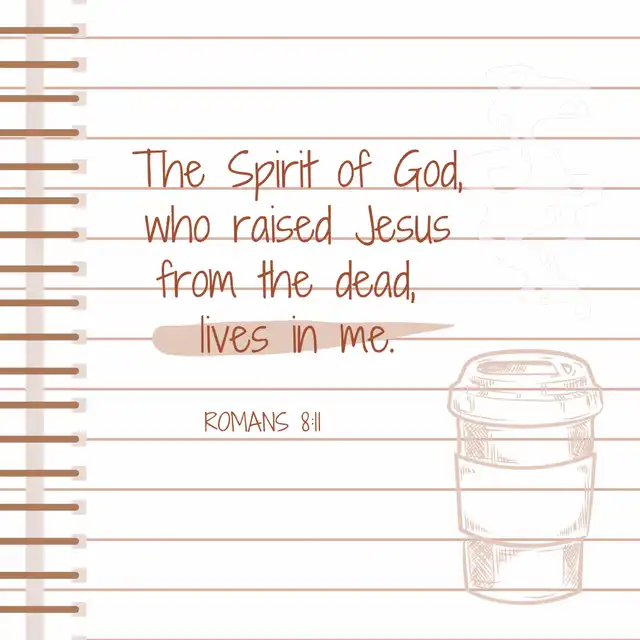 The Spirit of God,
who raised Jesus
from the dead,
lives in me.
ROMANS 8:11